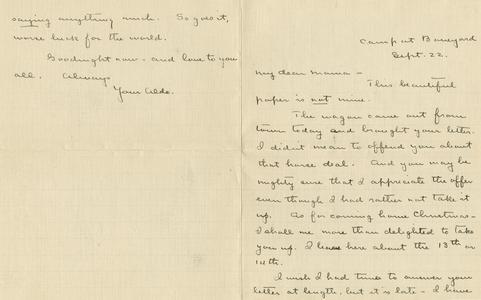 saying anything much. So goes it,
worse luck for the world.
Goodnight now - and love to you
all. Always
Your Aldo.
Camp at Boneyard
Sept. 22.
My dear Mama -
This beautiful
paper is not mine.
The wagon came out from
town today and brought your letter.
I didn't mean to offend you about
that horse deal. And you may be
mighty sure that I appreciate the offer
even though I had rather not take it
up. As for coming home Christmas -
I shall me more than delighted to take
you up. I leave here about the 13th or
14th.
I wish I had time to answer your
letter at length, but it is late - I have